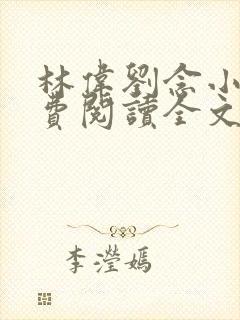 林偉劉念小
費閱讀全文
李瀅嫣